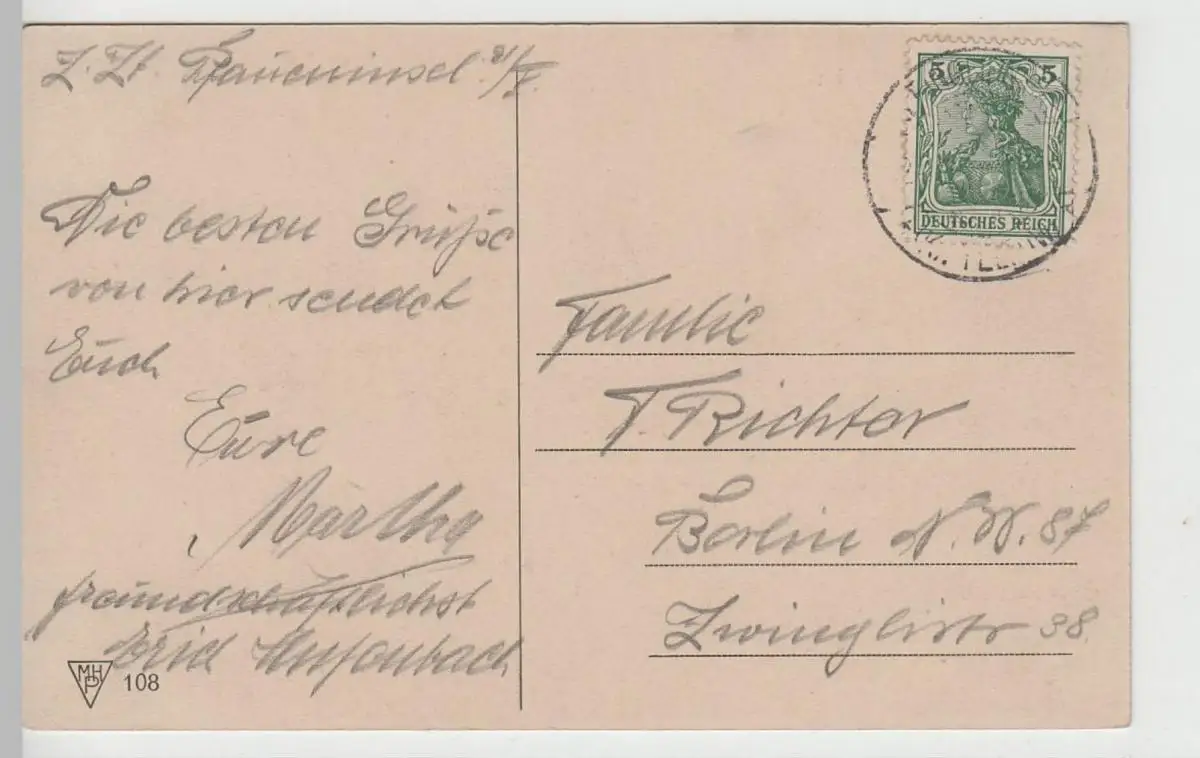 Z. Zt. Pfaueninsel 21/V.
Die besten Grüße
von hier sendet
Euch
Eure
Martha
freundschaftlichst
Erich
MHP 108
5 5
DEUTSCHES REICH
Familie
F. Richter
Berlin N.W. 87
Zwinglistr 38.